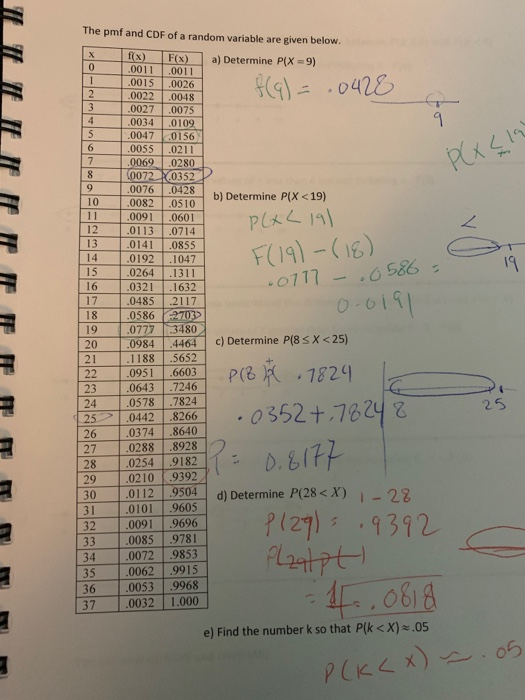 The pmf and CDF of a random variable are given below.
x f(x) F(x)
0 .0011 .0011
1 .0015 .0026
2 .0022 .0048
3 .0027 .0075
4 .0034 .0109
5 .0047 .0156
6 .0055 .0211
7 .0069 .0280
8 .0072 .0352
9 .0076 .0428
10 .0082 .0510
11 .0091 .0601
12 .0113 .0714
13 .0141 .0855
14 .0192 .1047
15 .0264 .1311
16 .0321 .1632
17 .0485 .2117
18 .0586 .2703
19 .0777 .3480
20 .0984 .4464
21 .1188 .5652
22 .0951 .6603
23 .0643 .7246
24 .0578 .7824
25 .0442 .8266
26 .0374 .8640
27 .0288 .8928
28 .0254 .9182
29 .0210 .9392
30 .0112 .9504
31 .0101 .9605
32 .0091 .9696
33 .0085 .9781
34 .0072 .9853
35 .0062 .9915
36 .0053 .9968
37 .0032 1.000
a) Determine P(X = 9)
f(9) = .0428
9
P(X ≤ 19
b) Determine P(X < 19)
P(X < 19)
<
F(19) - (18)
19
.0777 - .0586 =
0.0191
c) Determine P(8 ≤ X < 25)
P(8 + .7824
.0352 + .7824
8 25
P = 0.8177
d) Determine P(28 < X)
1 - 28
P(29) = .9392
= .0818
e) Find the number k so that P(k < X) ≈ .05
P(K < X) ≈ .05